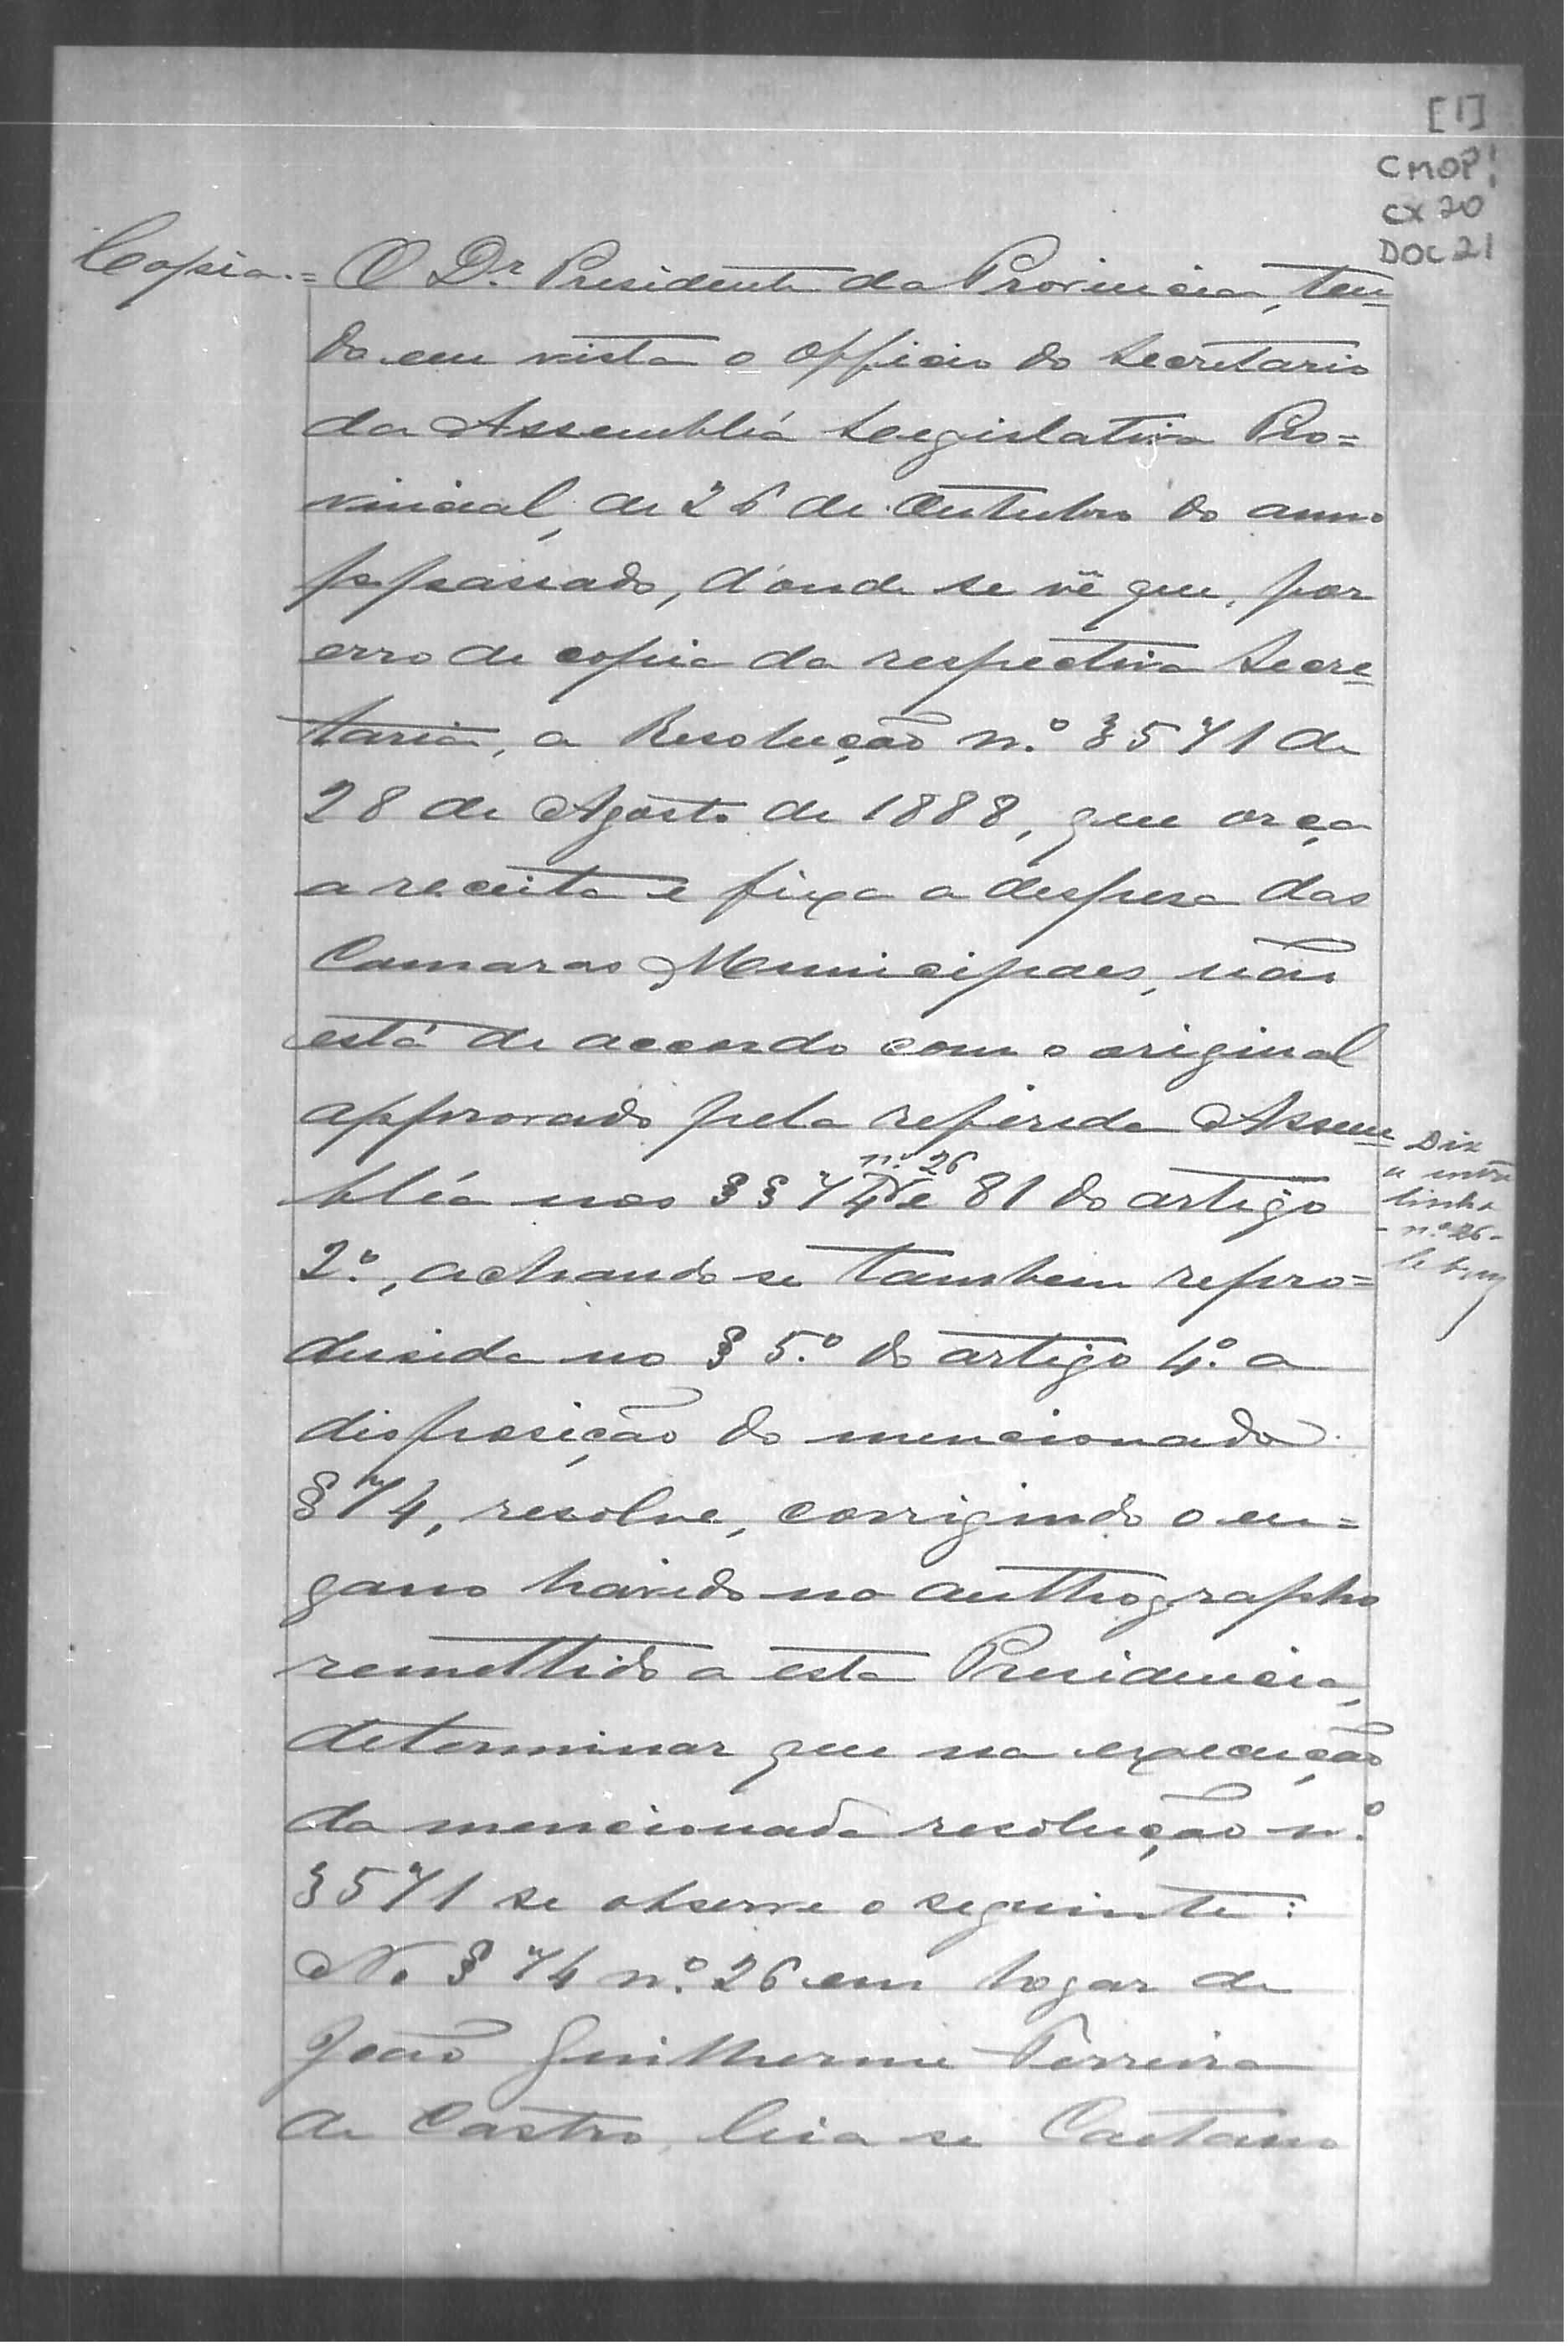 [1]
CMOP
CX 20
DOC 21
Copia.= O Dr. Presidente da Provincia, ten-
do em vista o officio do Secretario
da Assembléa Legislativa Pro=
vincial, de 26 de Outubro do anno
p. passado, d'onde se vê que, por
erro de copia da respectiva Secre-
taria, a Resolução n.º 3571 de
28 de Agosto de 1888, que orça
a receita e fixa a despesa das
Camaras Municipaes, não
está de accordo com o original
approvado pela referida Assem-
n.º 26
bléa nos §§ 74 e 81 do artigo
2.º, achando se tambem repro=
dusida no § 5.º do artigo 4.º a
disposição do mencionado
§ 74, resolve, corrigindo o en=
gano havido no authographo
remettido a esta Presidencia,
determinar que na execução
da mencionada resolução n.º
3571 se observe o seguinte:
No § 74 n.º 26 em logar de
João Guilherme Ferreira
de Castro, leia se Caetano
Diz
a entre
linha
- n.º 26 -